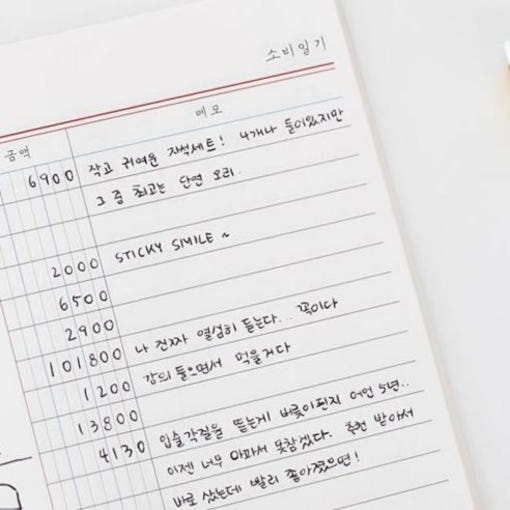 소비일기
금액 메모
6900 작고 귀여운 자석세트! 4개나 들어있지만
그 중 최고는 단연 오리.
2000 STICKY SMILE ~
6500
2900
101800 나 진짜 열심히 듣는다... 꼭이다
1200 강의 들으면서 먹을거다
13800
4130 입술각질을 뜯는게 버릇이된지 어언 5년..
이젠 너무 아파서 못참겠다. 추천 받아서
바로 샀는데 빨리 좋아졌으면!